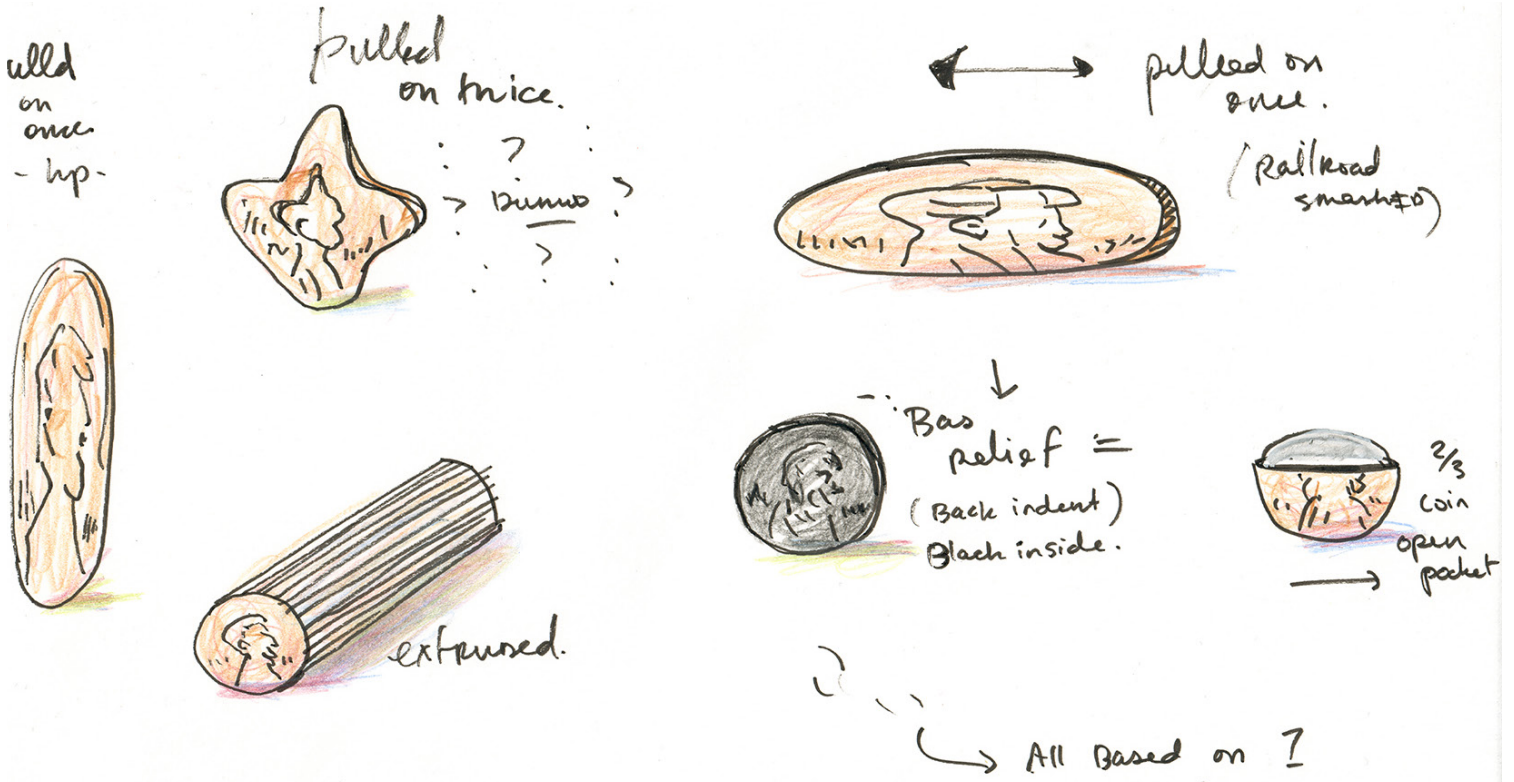 ulld
on
once
- up -
pulled
on twice.
?
? Dunno ?
?
pulled on
once.
(Railroad
smashED)
Bas
relief =
(Back indent)
Black inside.
2/3
coin
open
pocket
extrused.
All Based on 1